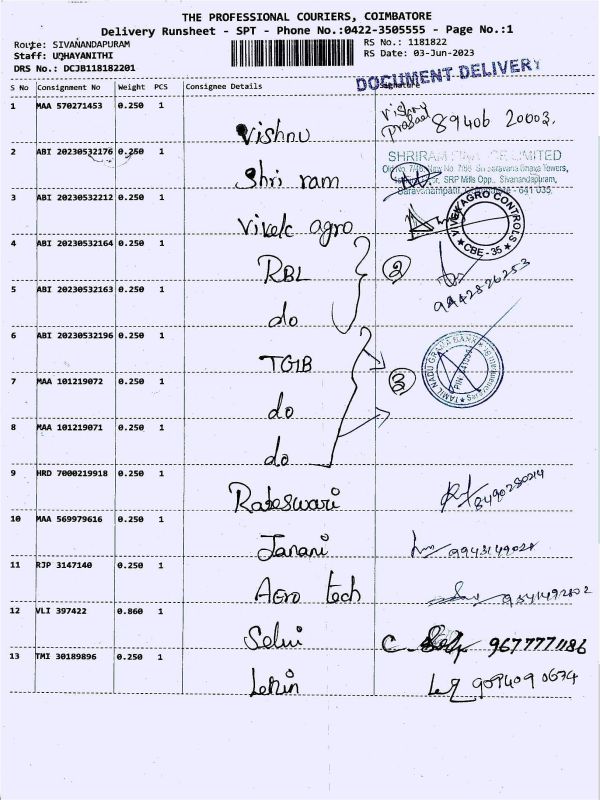 THE PROFESSIONAL COURIERS, COIMBATORE
Delivery Runsheet - SPT - Phone No.:0422-3505555 - Page No.:1
Route: SIVANANDAPURAM
RS No.: 1181822
Staff: UDHAYANITHI
RS Date: 03-Jun-2023
DRS No.: DCJB118182201
DOCUMENT DELIVERY
S No Consignment No Weight PCS Consignee Details Signature
1 MAA 570271453 0.250 1
Vishnu
Vishnu
Prasad 89406 20003.
2 ABI 20230532176 0.250 1
Shri ram
SHRIRAM LIMITED
SRP Mills Opp., Sivanandapuram,
- 641 035
3 ABI 20230532212 0.250 1
Vivek agro
VIVEK AGRO CONTROLS
CBE - 35
4 ABI 20230532164 0.250 1
RBL
2
9442826253
5 ABI 20230532163 0.250 1
do
6 ABI 20230532196 0.250 1
TGB
TAMIL NADU GRAMA BANK
7 MAA 101219072 0.250 1
do
3
8 MAA 101219071 0.250 1
do
9 HRD 7000219918 0.250 1
Rajeswari
10 MAA 569979616 0.250 1
Janani
11 RJP 3147140 0.250 1
Agro tech
12 VLI 397422 0.860 1
Selvi
C
13 TMI 30189896 0.250 1
Lenin